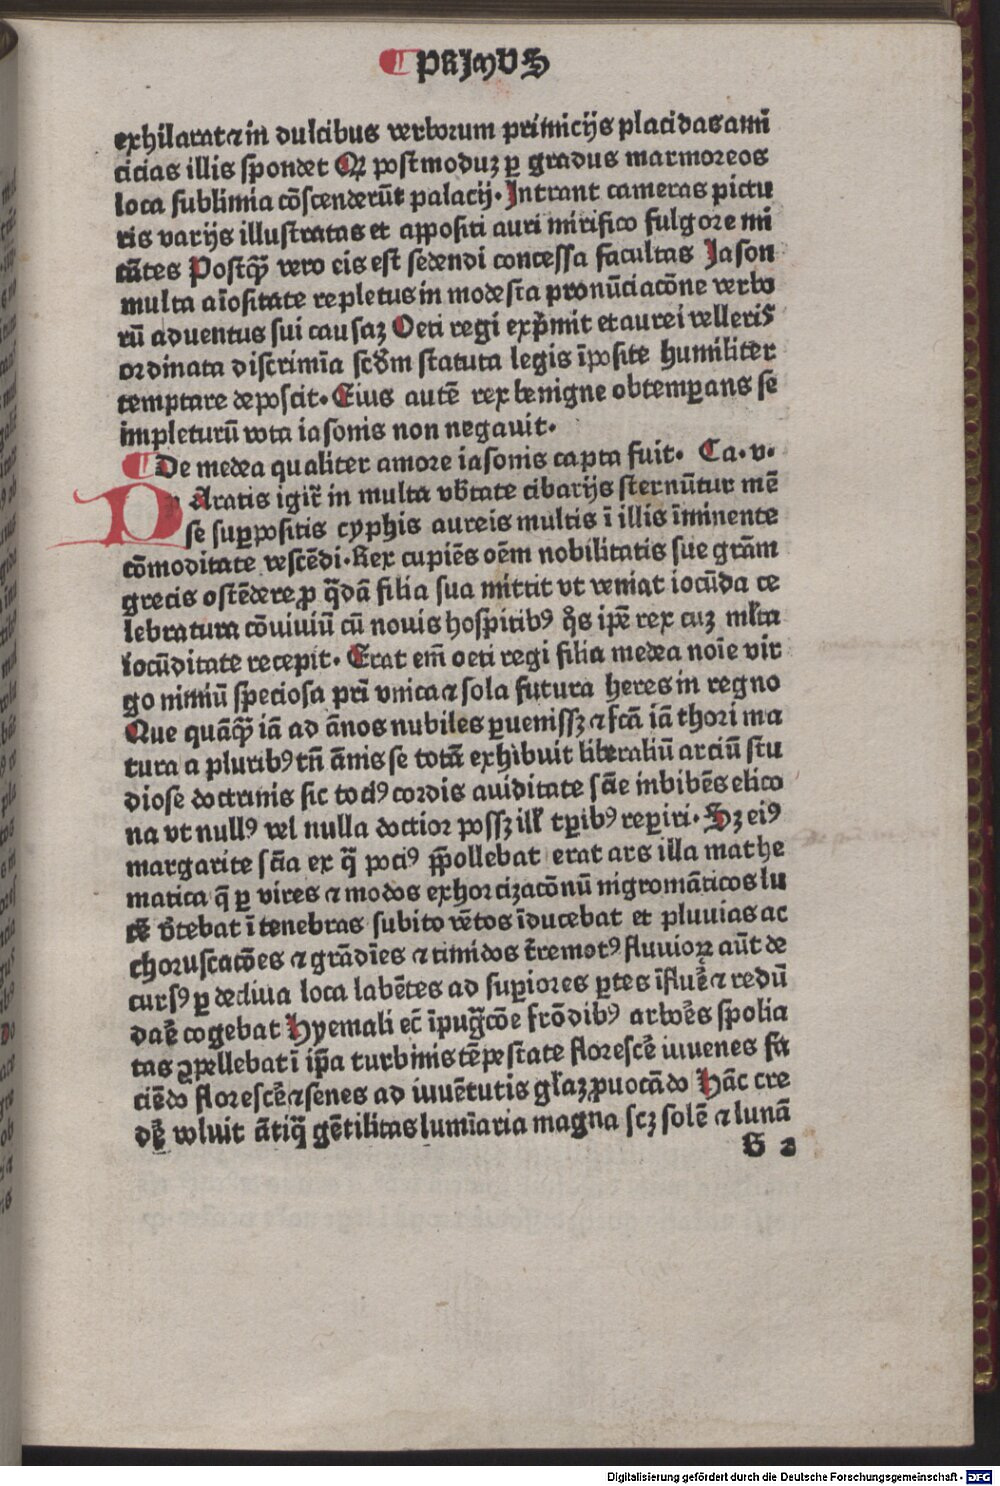 PRIMVS
exhilarat ⁊ in dulcibus verborum primicijs placidas ami
cicias illis spondet Qꝛ postmoduꝫ ꝑ gradus marmoreos
loca sublimia cōscenderūt palacij. Intrant cameras pictu
ris varijs illustratas et appositi auri mirifico fulgore mi
cātes Postq̄ꝫ vero eis est sedendi concessa facultas Jason
multa aīositate repletus in modesta pronūciacōne verbo
rū aduentus sui causaꝫ Oeti regi exp̄mit et aurei velleris
ordinata discrimīa scd̄m statuta legis īposite humiliter
temptare deposcit. Eius autē rex benigne obtemꝑans se
impleturū vota iasonis non negauit.
De medea qualiter amore iasonis capta fuit. Ca. v.
D Aratis igiẗ in multa vb̄tate cibarijs sternūtur mē
se suꝑpositis cyphis aureis multis ī illis īminente
cōmoditate vescēdi. Rex cupiēs oēm nobilitatis sue grām
grecis ostēdere ꝓ q̄dā filia sua mittit vt veniat iocūda ce
lebratura cōuiuiū cū nouis hospitibꝰ q̊s ip̄e rex cuꝫ ml̄ta
iocūditate recepit. Erat em̄ oeti regi filia medea noīe vir
go nimiū speciosa pr̄i vnica ⁊ sola futura heres in regno
Que quāq̄ꝫ iā ad ānos nubiles ꝑuenissꝫ ⁊ fcā iā thori ma
tura a pluribꝰ tn̄ ānis se totā exhibuit liberaliū arciū stu
diose doctrinis sic tociꝰ cordis auiditate scīe inbibēs elico
na vt nullꝰ vel nulla doctior possꝫ ill̄ tꝑibꝰ reperiri. Sꝫ eiꝰ
margarite scīa ex q̄ pociꝰ p̄pollebat erat ars illa mathe
matica q̄ ꝑ vires ⁊ modos exhorcizacōnū nigromāticos lu
cē v̄tebat ī tenebras subito vētos īducebat et pluuias ac
choruscacōes ⁊ grādīes ⁊ timidos t̄remotꝰ fluuioꝝ aūt de
cursꝰ ꝑ decliua loca labētes ad suꝑiores ꝑtes īfluē̄ ⁊ redū
dar̄e cogebat Hyemali ec̄ īpuḡcōe frōdibꝰ arbores spolia
tas ꝯpellebat ī ip̄a turbinis tēpestate florescē̄ iuuenes fa
ciēdo florescē̄ ⁊ senes ad iuuētutis gl̄aꝫ ꝓuocādo Hāc cre
dē̄ voluit ātiq̄ gētilitas lumīaria magna scꝫ solē ⁊ lunā
Digitalisierung gefördert durch die Deutsche Forschungsgemeinschaft - DFG